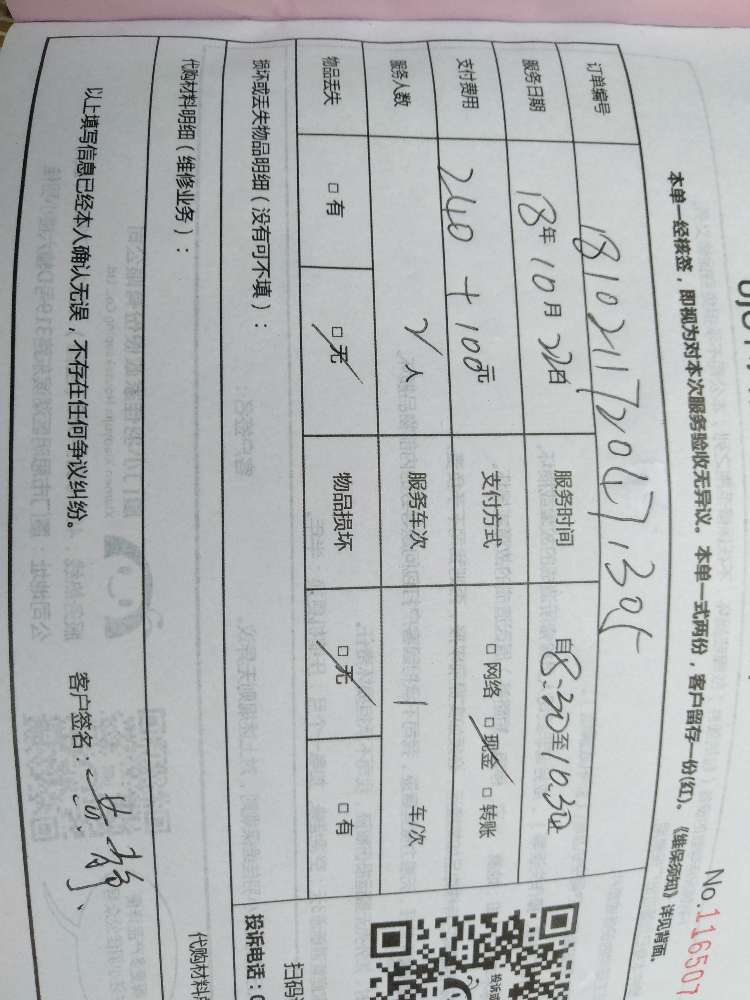 No.116507
本单一经核签，即视为对本次服务验收无异议。本单一式两份，客户留存一份(红)。《维保须知》详见背面。
订单编号
服务日期 18年10月22日 服务时间 自8:30至10:30止
支付费用 240+100元 支付方式 □网络 □现金 □转账
服务人数 2人 服务车次 1 车/次
物品丢失 □有 □无 物品损坏 □无 □有
损坏或丢失物品明细（没有可不填）：
代购材料明细（维修业务）：
以上填写信息已经本人确认无误，不存在任何争议纠纷。 客户签名：
投诉电话：
代购材料